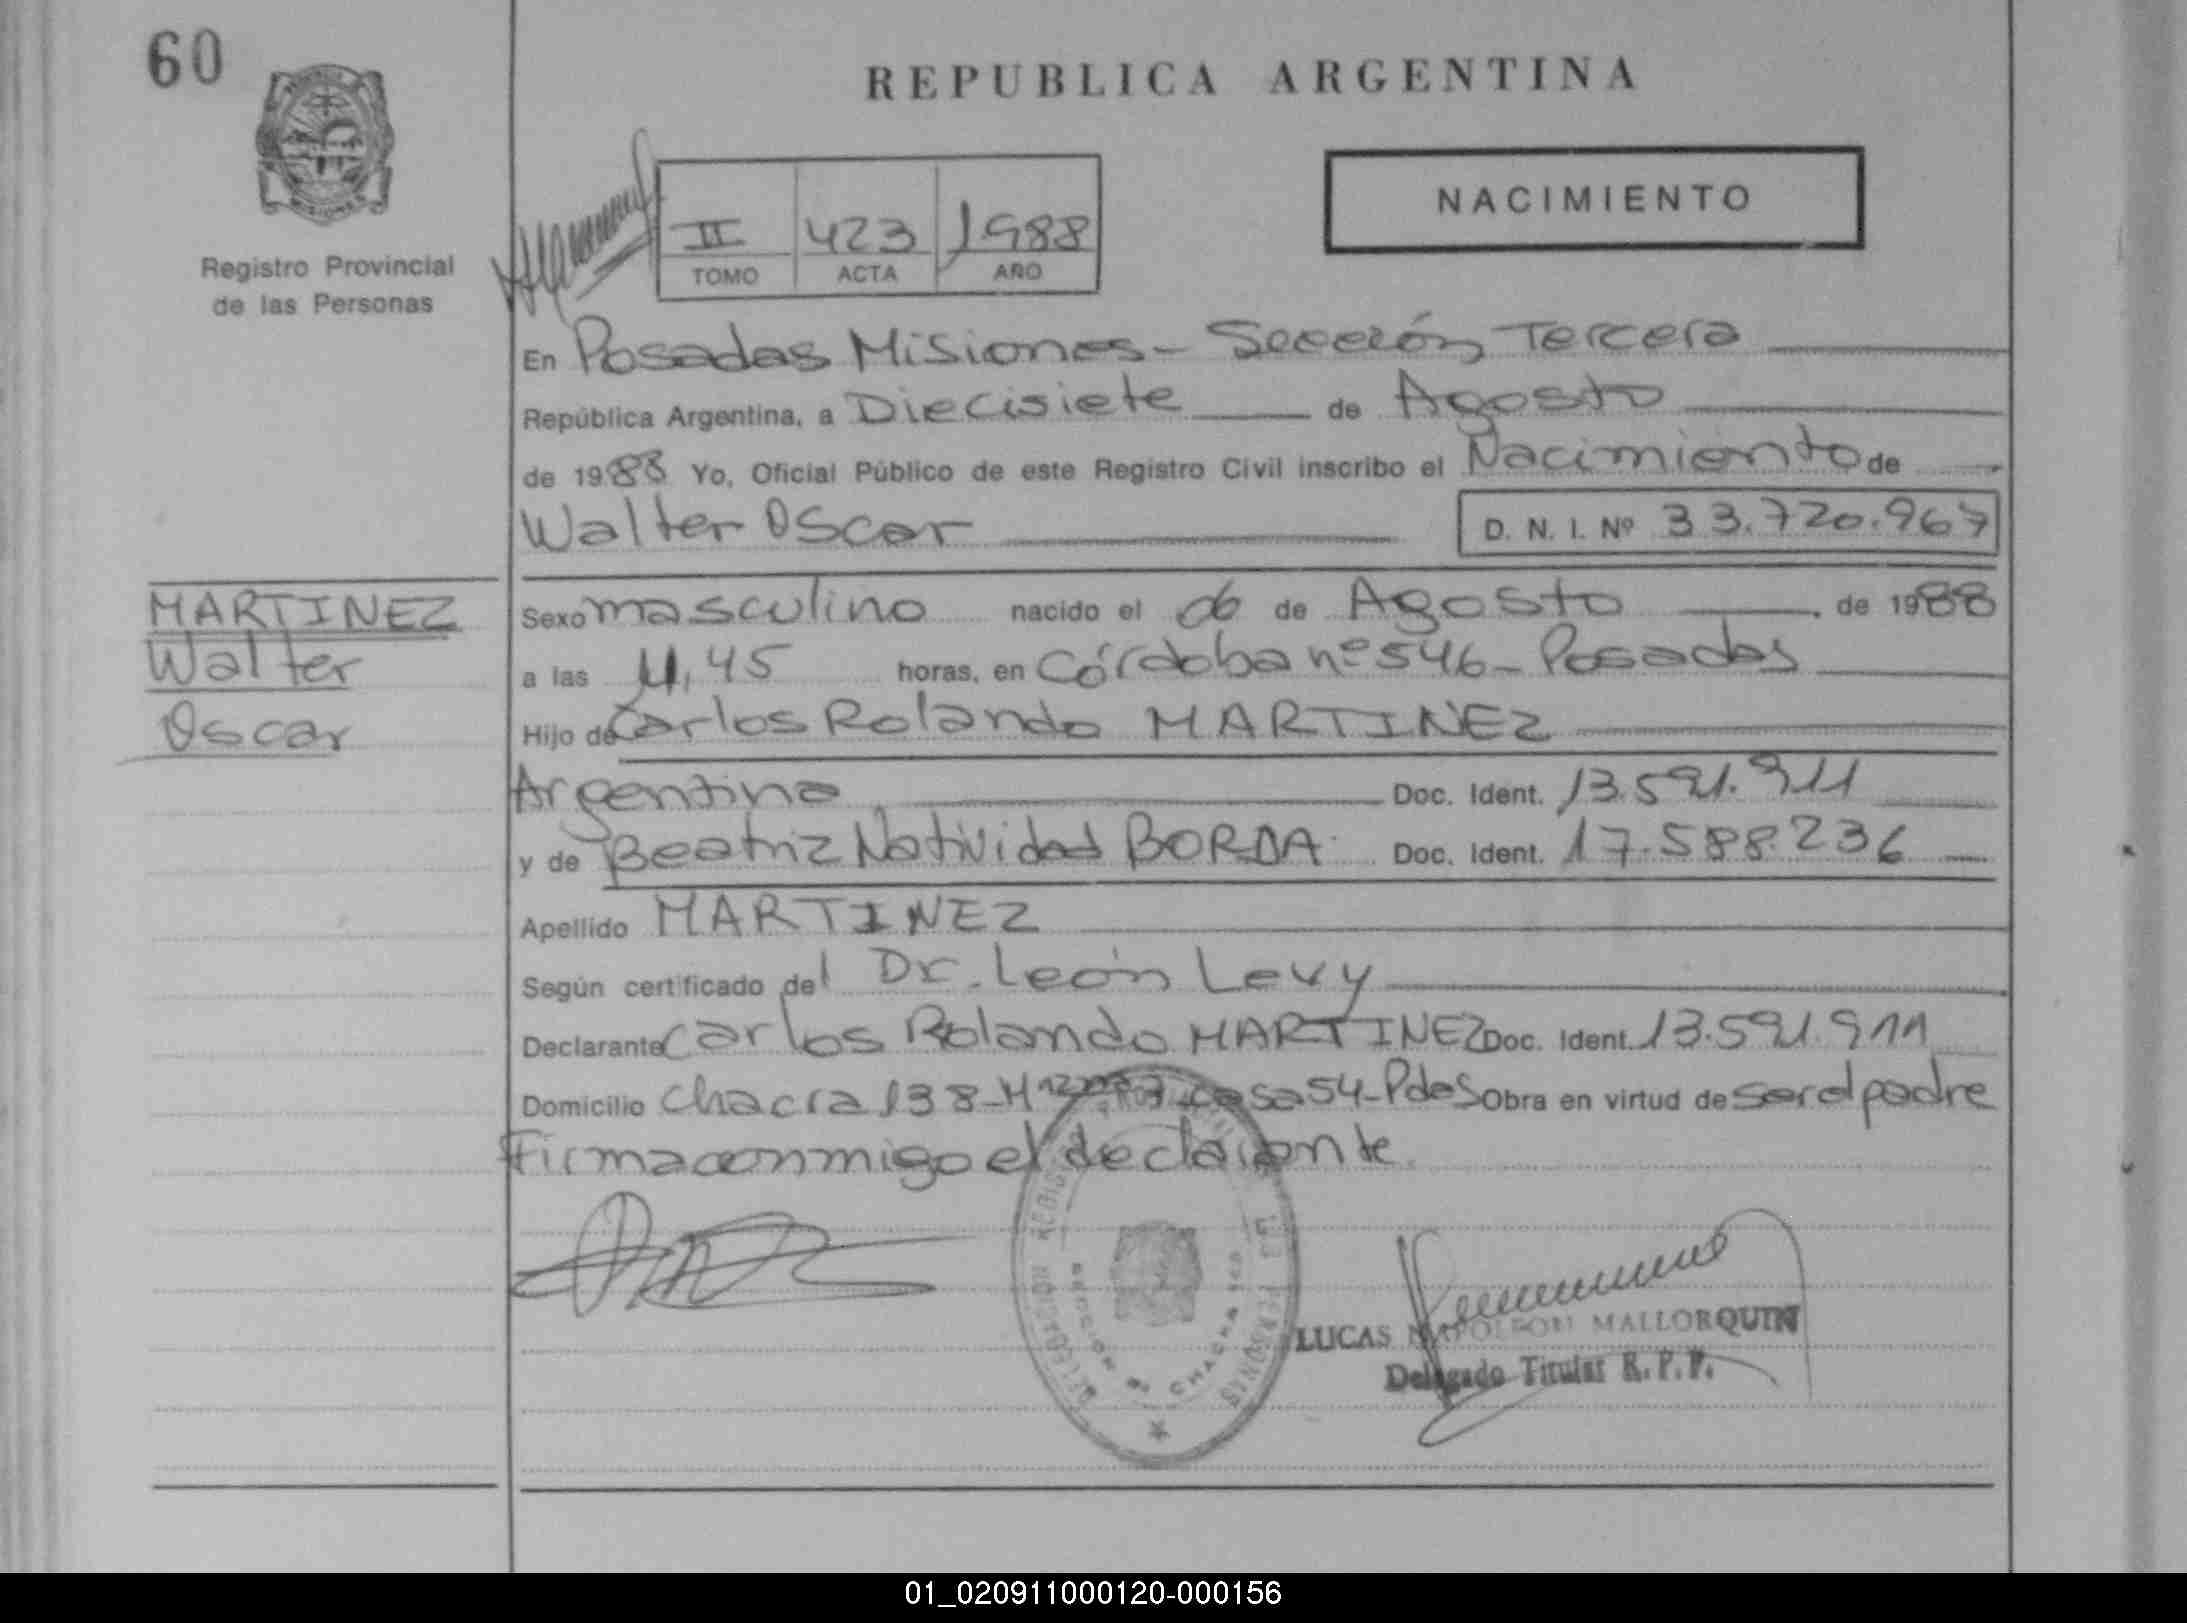 60
REPUBLICA ARGENTINA
MISIONES
Registro Provincial
de las Personas
II 423 1988
TOMO ACTA AÑO
NACIMIENTO
En Posadas Misiones - Sección Tercera
República Argentina, a Diecisiete de Agosto
de 1988 Yo, Oficial Público de este Registro Civil inscribo el Nacimiento de
Walter Oscar D. N. I. Nº 33.720.967
MARTINEZ
Walter
Oscar
Sexo masculino nacido el 06 de Agosto de 1988
a las 11,45 horas, en Córdoba nº 546 - Posadas
Hijo de Carlos Rolando MARTINEZ
Argentino Doc. Ident. 13.591.911
y de Beatriz Natividad BORDA Doc. Ident. 17.588.236
Apellido MARTINEZ
Según certificado del Dr. León Levy
Declarante Carlos Rolando MARTINEZ Doc. Ident. 13.591.911
Domicilio Chacra 138 - casa 54 - Pdas Obra en virtud de ser el padre
Firma conmigo el declarante.
DELEGACION REGIS LAS PERSONAS
SECCION CHACRA
LUCAS NAPOLEON MALLORQUIN
Delegado Titular R. P. P.
01_020911000120-000156